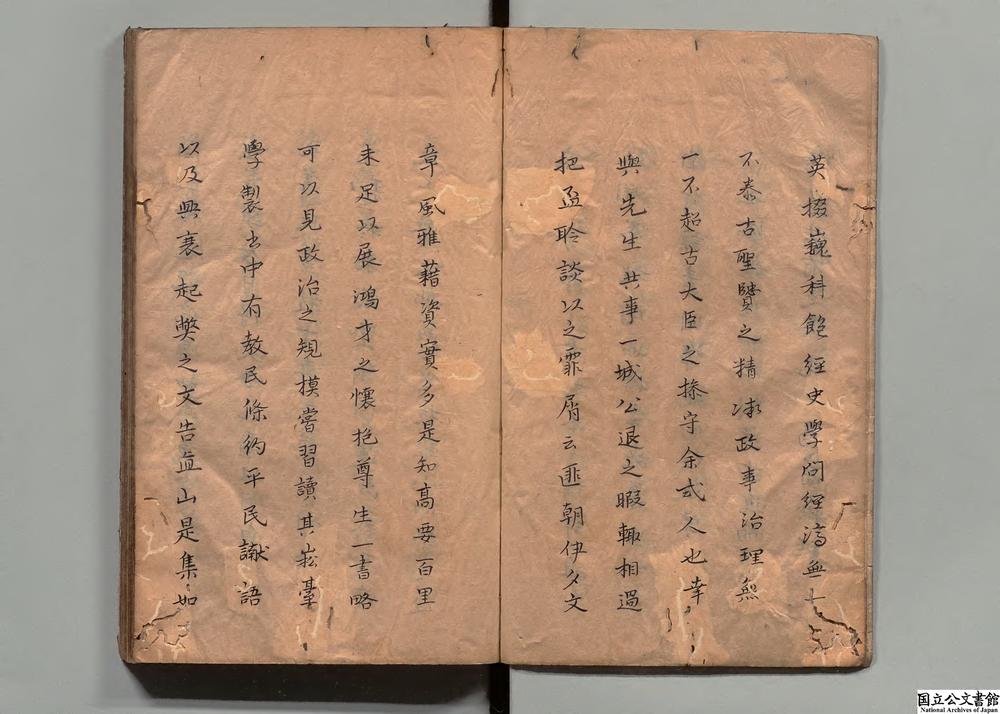 英掇巍科飽經史學問經濟無一
不泰古聖賢之精微政事治理無
一不超古大臣之操守余武人也幸
與先生共事一城公退之暇輙相過
把盃聆談以之霏屑云匪朝伊夕文
章風雅藉資實多是知高要百里
未足以展鴻才之懷抱尊生一書略
可以見政治之規摸嘗習讀其崧臺
學製書中有教民條約平民讞語
以及興衰起獘之文告並山是集如
国立公文書館
National Archives of Japan